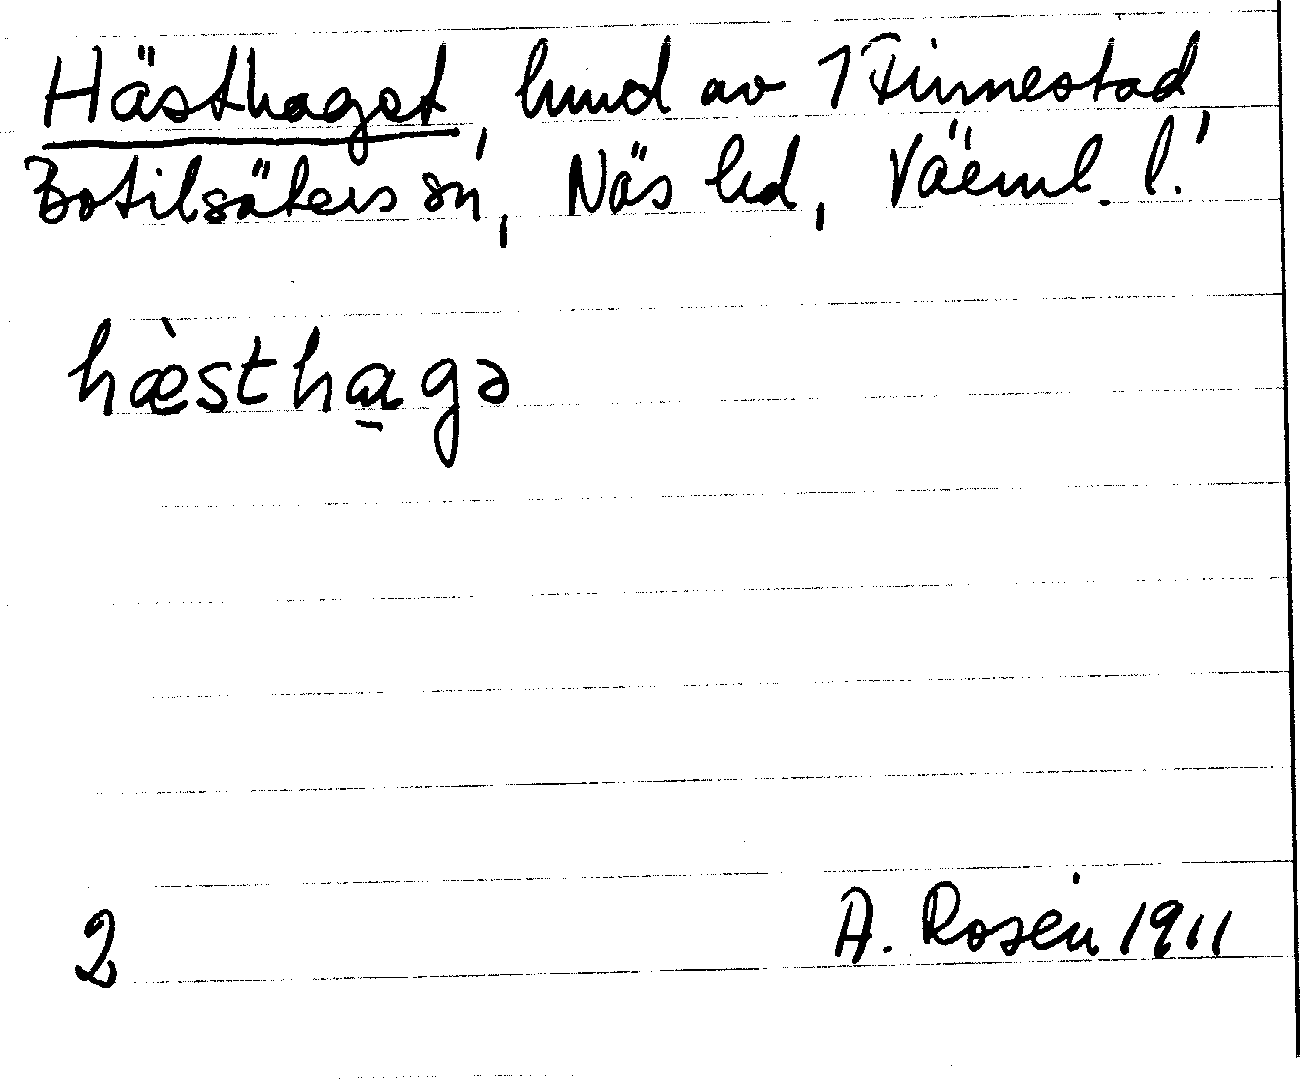 Hästhaget, hmd av 1 Finnestad,
Botilsäters sn, Näs hd, Värml. l.
hæ̀sthagə
2 A. Rosén 1911